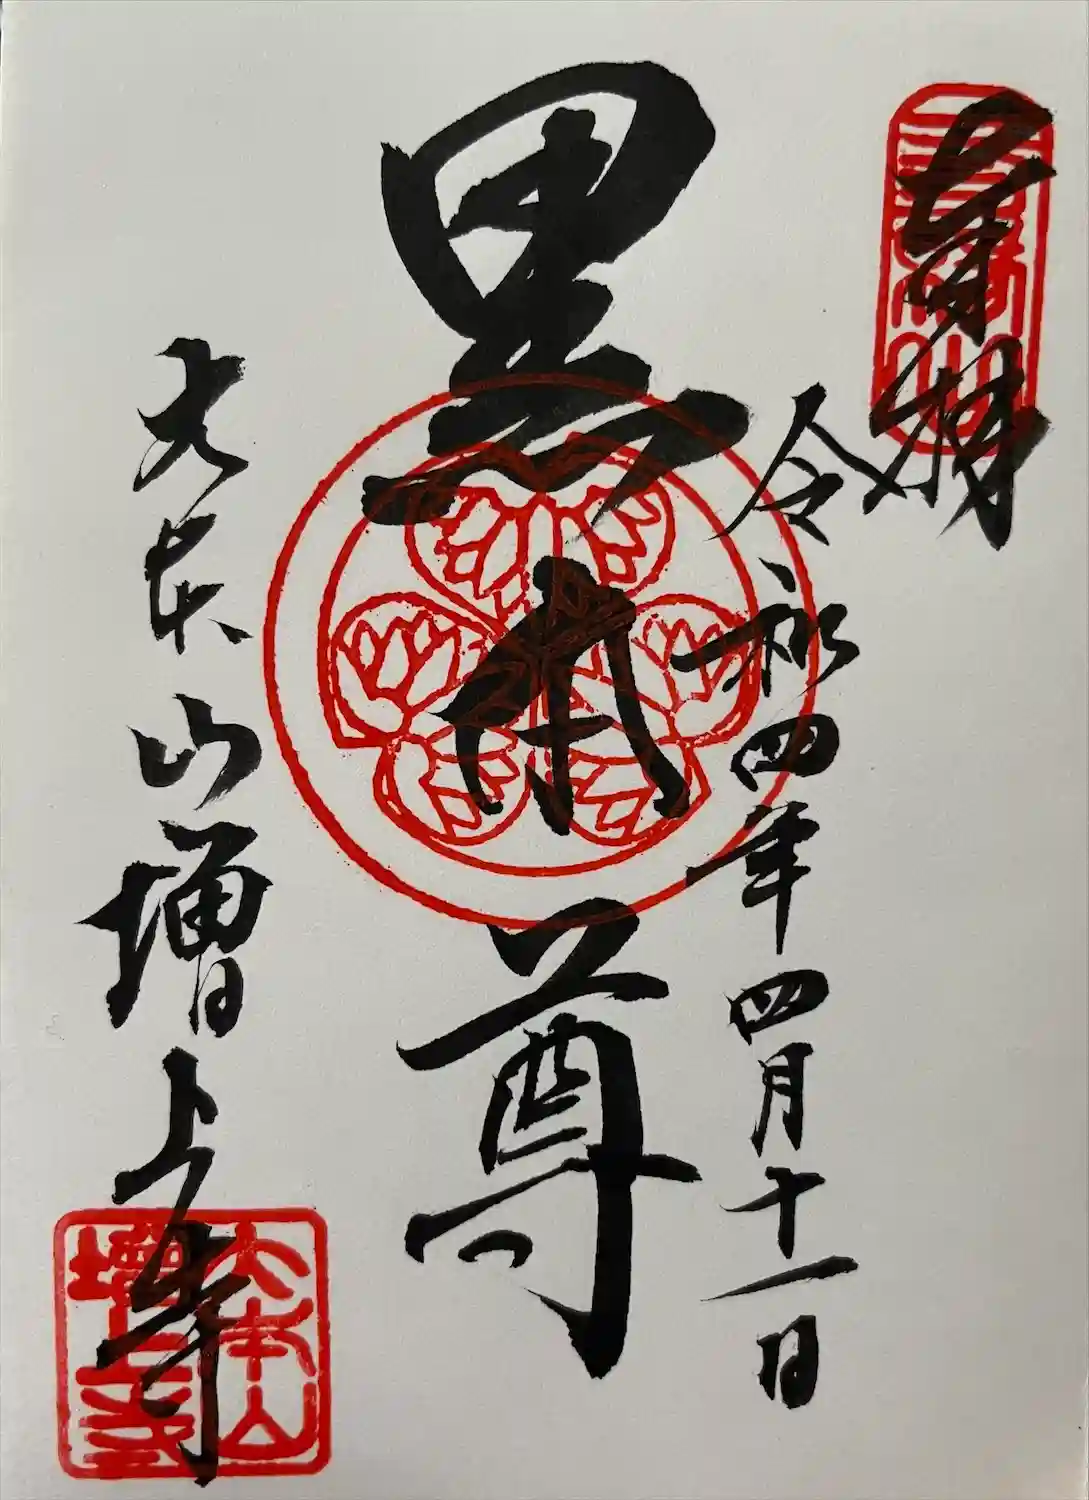 奉拝
令和四年四月十一日
黒本尊
大本山増上寺
大本山
増上寺